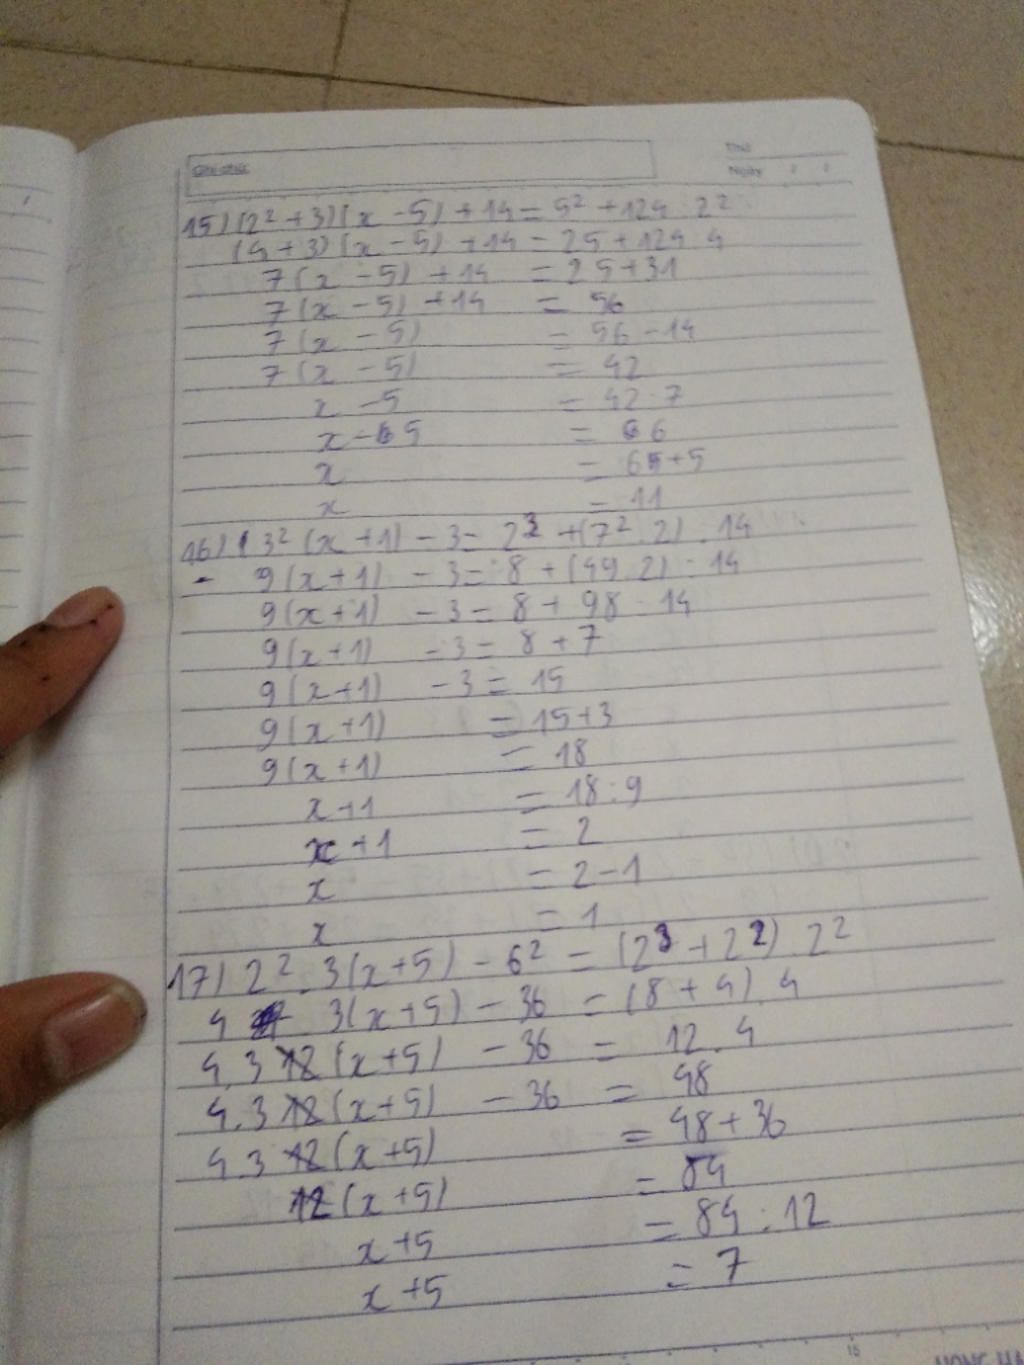 Ghi chú:
Thứ
Ngày
15) (2² + 3)(x - 5) + 14 = 5² + 124 : 2²
(4 + 3)(x - 5) + 14 = 25 + 124 : 4
7(x - 5) + 14 = 25 + 31
7(x - 5) + 14 = 56
7(x - 5) = 56 - 14
7(x - 5) = 42
x - 5 = 42 : 7
x - 5 = 6
x = 6 + 5
x = 11
16) 3² (x + 1) - 3 = 2³ + (7² . 2) : 14
- 9(x + 1) - 3 = 8 + (49 . 2) : 14
9(x + 1) - 3 = 8 + 98 : 14
9(x + 1) - 3 = 8 + 7
9(x + 1) - 3 = 15
9(x + 1) = 15 + 3
9(x + 1) = 18
x + 1 = 18 : 9
x + 1 = 2
x = 2 - 1
x = 1
17) 2² . 3(x + 5) - 6² = (2³ + 2²) . 2²
4 . 3(x + 5) - 36 = (8 + 4) . 4
4 . 3 12 (x + 5) - 36 = 12 . 4
4 . 3 12 (x + 5) - 36 = 48
4 . 3 12 (x + 5) = 48 + 36
12 (x + 5) = 84
x + 5 = 84 : 12
x + 5 = 7
15
HONG HA